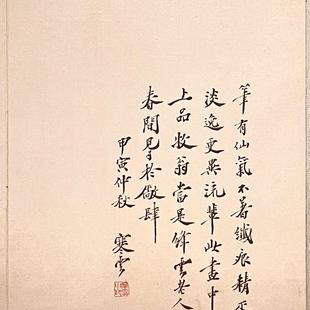 筆有仙氣不著纖痕精
淡逸更異流輩此畫中
上品牧翁當是餘雲老人
春間見于於儆肆
甲寅仲秋
寒雲